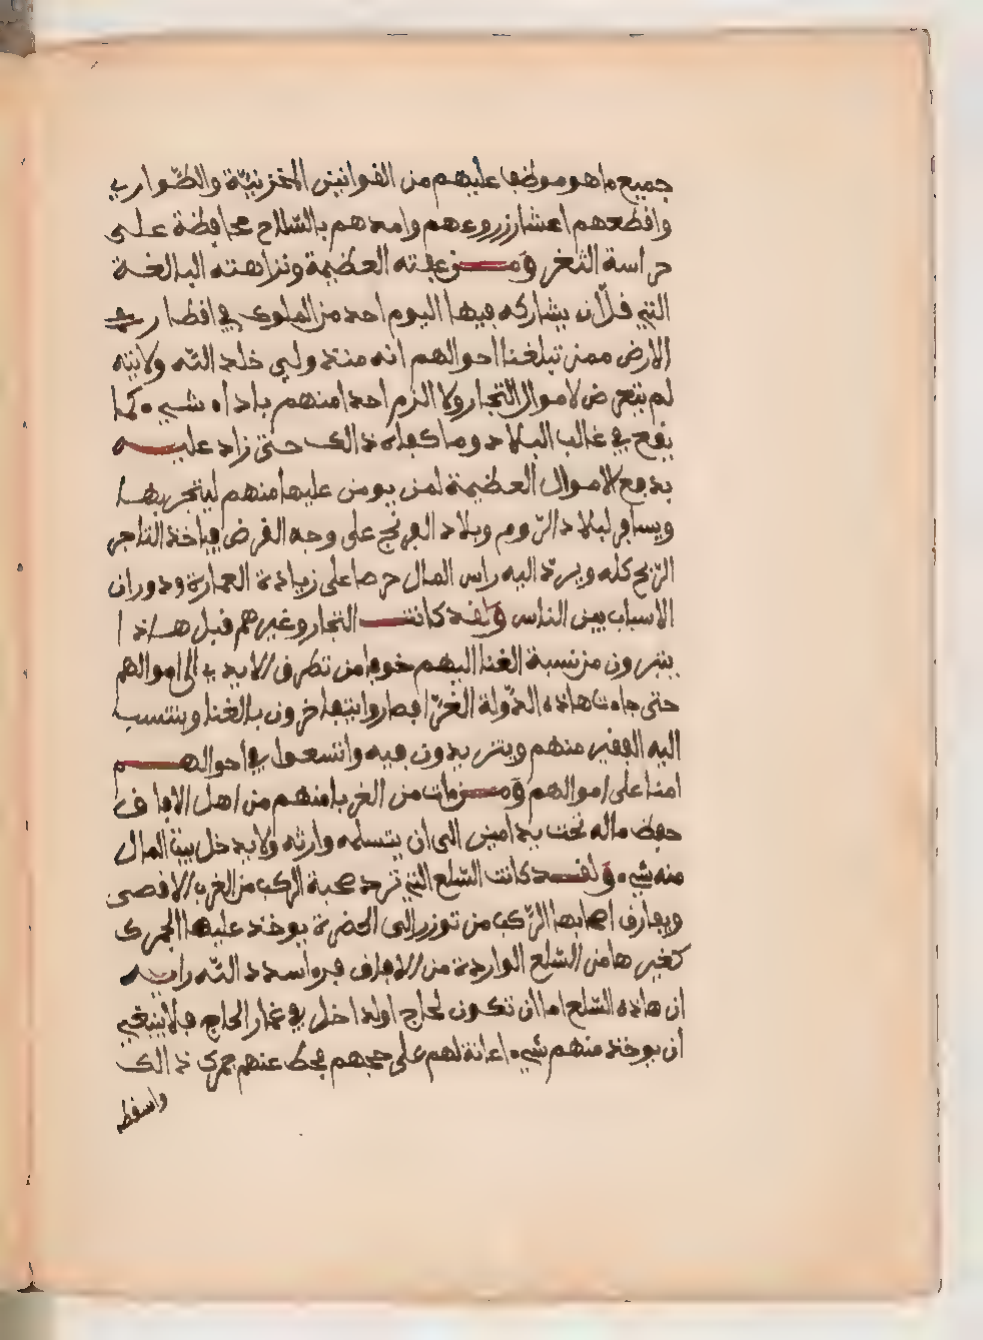 جميع ما هو موظف عليهم من القوانين المخزنيّة والطّواري
واقطعهم اعشار زروعهم وامدهم بالسّلاح محافظة على
حراسة الثغر ومن عفته العظيمة ونزاهته البالغة
التي قلّ أن يشاركه فيها اليوم احد من الملوك في اقطار
الارض ممن تبلغنا احوالهم انه منذ ولي خلد الله ولايته
لم يتعرض لاموال التجار ولا الزم احدا منهم باداء شيء كما
يقع في غالب البلاد وما كفاه ذالك حتى زاد عليه
بدفع الاموال العظيمة لمن يومن عليها منهم ليتجر بها
ويسافر لبلاد الرّوم وبلاد الفرنج على وجه القرض فياخذ التاجر
الرّبح كله ويردّ اليه راس المال حرصا على زيادة العمارة ودوران
الاسباب بين الناس ولقد كانت التجار وغيرهم قبل هاذا
يتبرون من نسبة الغنا اليهم خوفا من تطرف الايدي الى اموالهم
حتى جاءت هاذه الدّولة الغرّا فصاروا يتفاخرون بالغنا وينتسب
اليه الفقير منهم ويتزيدون فيه واتسعوا في احوالهم
امنا على اموالهم ومن مات من الغربا منهم من اهل الافاق
حفظ ماله تحت يد امين الى ان يتسلمه وارثه ولا يدخل بيت المال
منه شيء ولقد كانت السّلع التي ترد صحبة الركب من الغرب الاقصى
ويفارق اصحابها الرّكب من توزر الى الحضرة يوخذ عليها الجمرك
كغيرها من السّلع الواردة من الافاق فرءا سدد الله رايه
ان هاذه السّلع اما ان تكون لحاج او لداخل في غمار الحاج فلا ينبغي
أن يوخذ منهم شيء اعانة لهم على حجهم فحط عنهم جمرك ذالك
واسقط